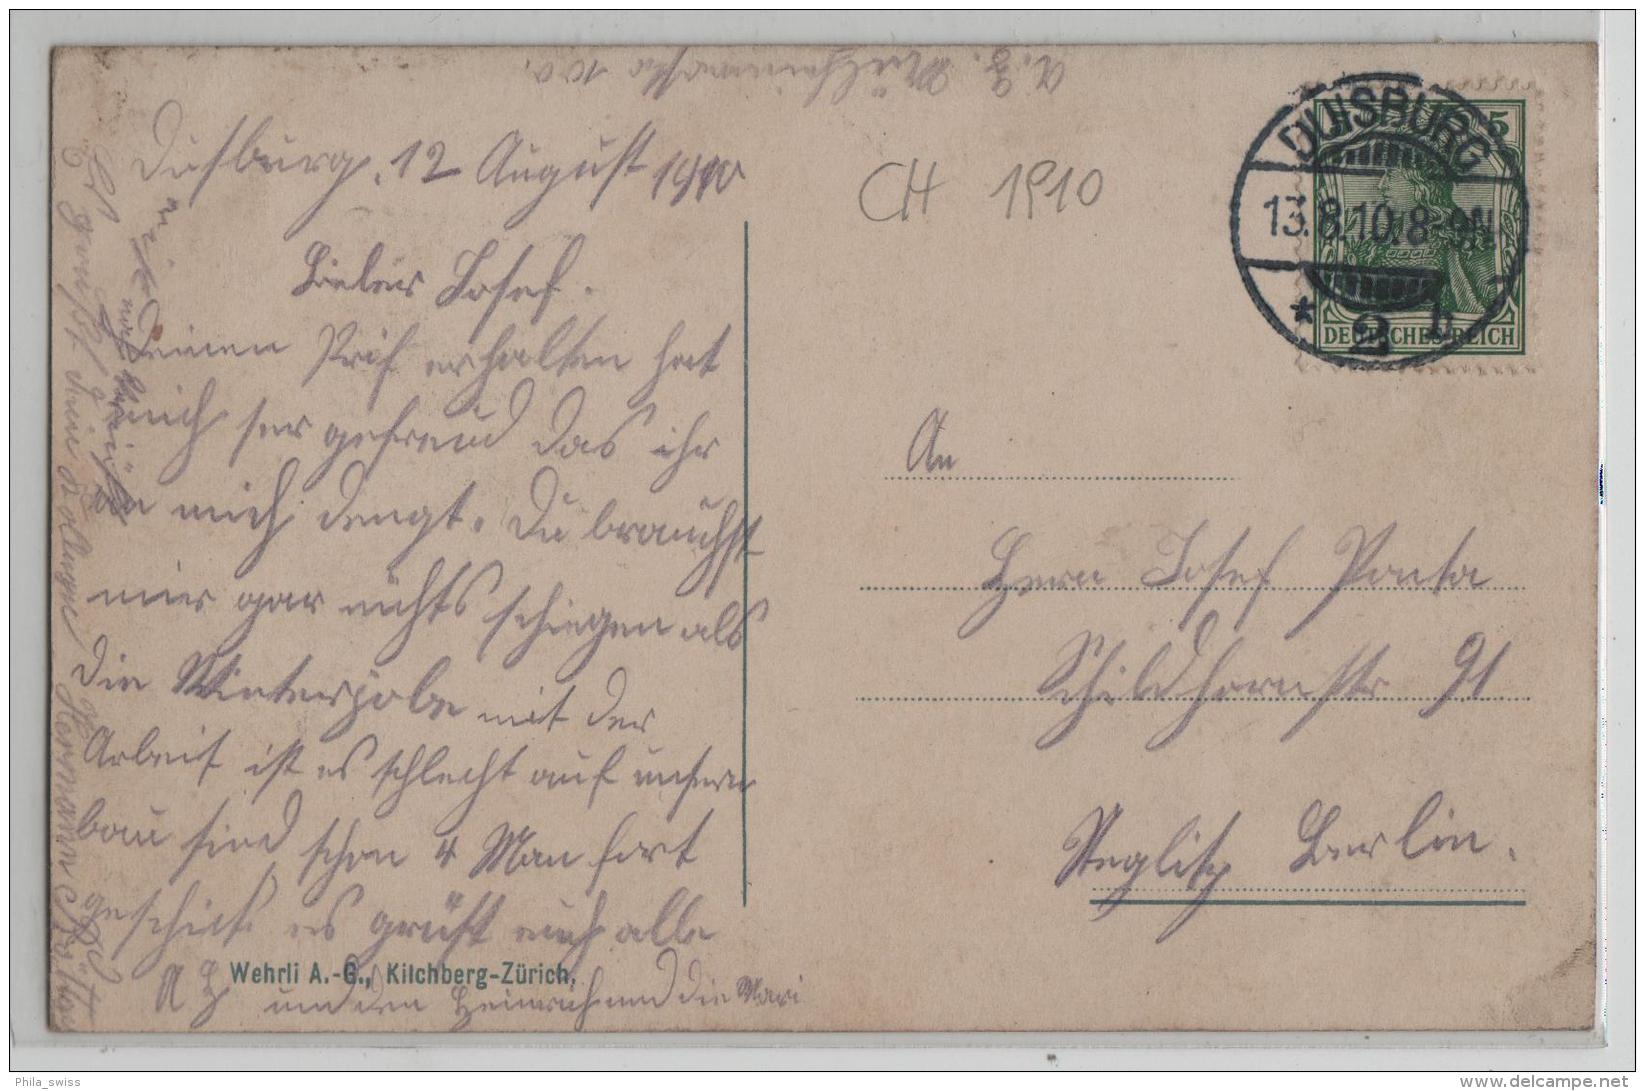 Duisburg, 12 August 1910
Lieber Josef.
Deinen Prif erhalten hat
mich ser gefreud das ihr
an mich dengt. Du brauchst
mir gar nichts schiegen als
die Winterjobe mit der
Arbeit ist es schlecht auf unseren
bau sind schon 4 Man fort
geschikt es grüst euch alle
und den Heinrich und die Mari
Wehrli A.-G., Kilchberg-Zürich.
CH 1910
DUISBURG
13.8.10.8-9N.
* 2 n
5
DEUTSCHES REICH
An
Herrn Josef Ponta
Schildhornstr 91
Steglitz Berlin.
Phila_swiss
www.delcampe.net